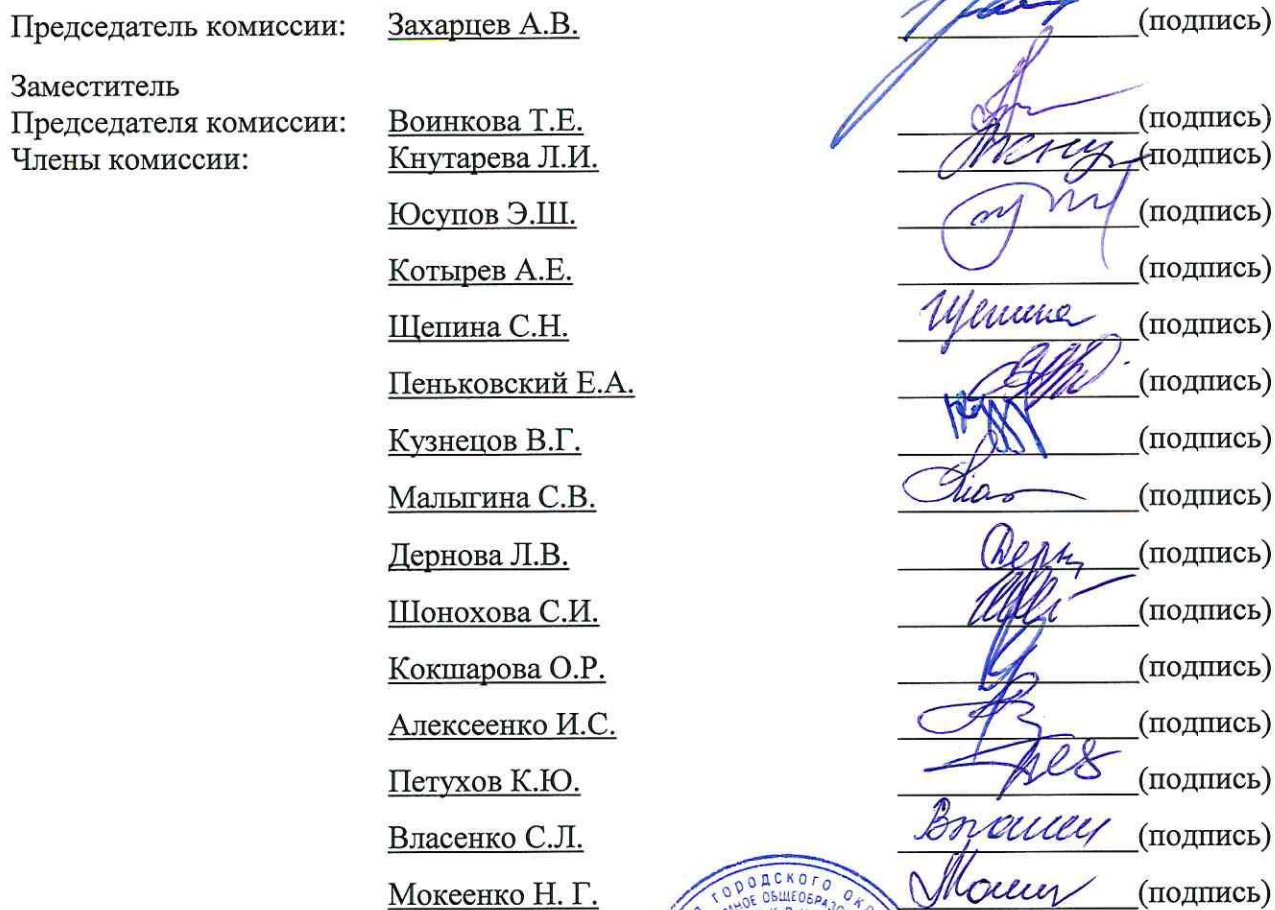 Председатель комиссии: Захарцев А.В. (подпись)
Заместитель
Председателя комиссии: Воинкова Т.Е. (подпись)
Члены комиссии: Кнутарева Л.И. (подпись)
Юсупов Э.Ш. (подпись)
Котырев А.Е. (подпись)
Щепина С.Н. Щепина (подпись)
Пеньковский Е.А. (подпись)
Кузнецов В.Г. (подпись)
Малыгина С.В. (подпись)
Дернова Л.В. Дерн (подпись)
Шонохова С.И. (подпись)
Кокшарова О.Р. (подпись)
Алексеенко И.С. (подпись)
Петухов К.Ю. (подпись)
Власенко С.Л. (подпись)
Мокеенко Н. Г. (подпись)
ГОРОДСКОГО